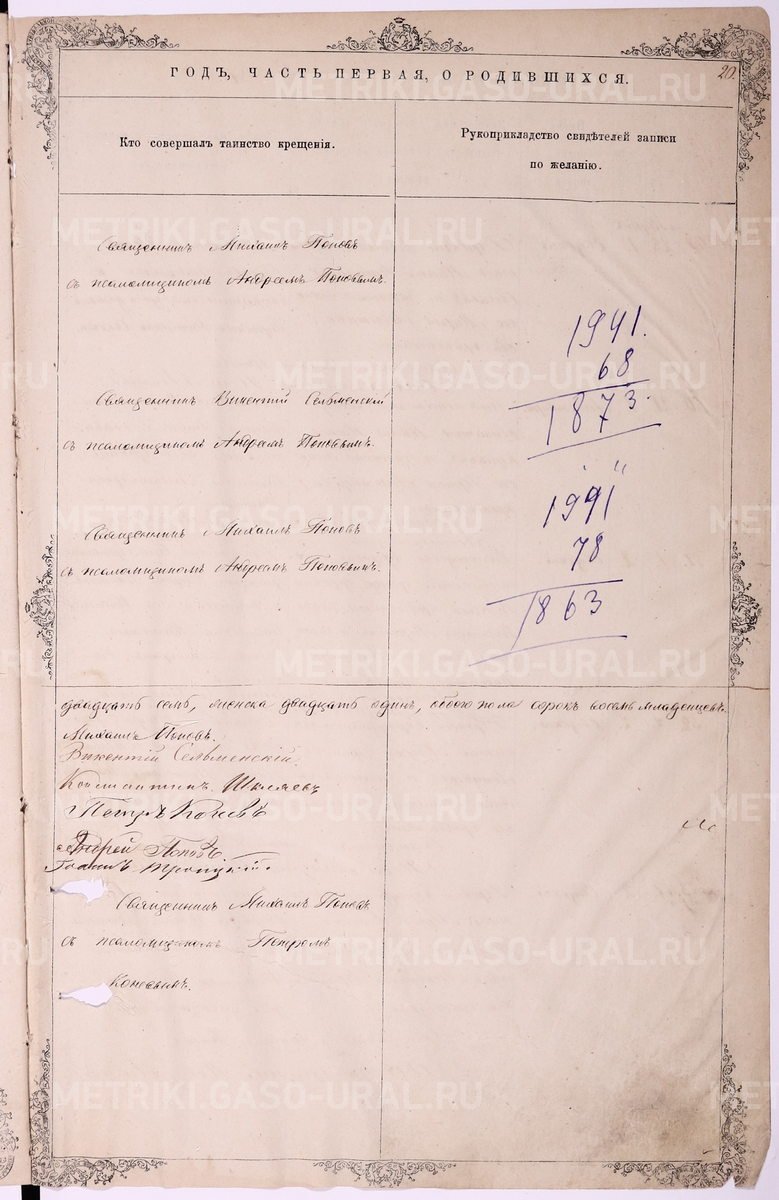 ГОДЪ, ЧАСТЬ ПЕРВАЯ, О РОДИВШИХСЯ.
20.
Кто совершалъ таинство крещенія.
Рукоприкладство свидѣтелей записи
по желанію.
Священникъ Михаилъ Поповъ
съ псаломщикомъ Андреемъ Поповымъ.
Священникъ Викентій Сельменскій
съ псаломщикомъ Андреемъ Поповымъ.
Священникъ Михаилъ Поповъ
съ псаломщикомъ Андреемъ Поповымъ.
1941.
68
1873.
1941
78
1863
двадцать семь, женска двадцать одинъ, обоего пола сорокъ восемь младенцевъ.
Михаилъ Поповъ.
Викентій Сельменскій.
Константинъ Шиляевъ
Петръ Коневъ
Андрей Поповъ
Іоаннъ Троицкій.
Священникъ Михаилъ Поповъ
съ псаломщикомъ Петромъ
Коневымъ.
METRIKI.GASO-URAL.RU